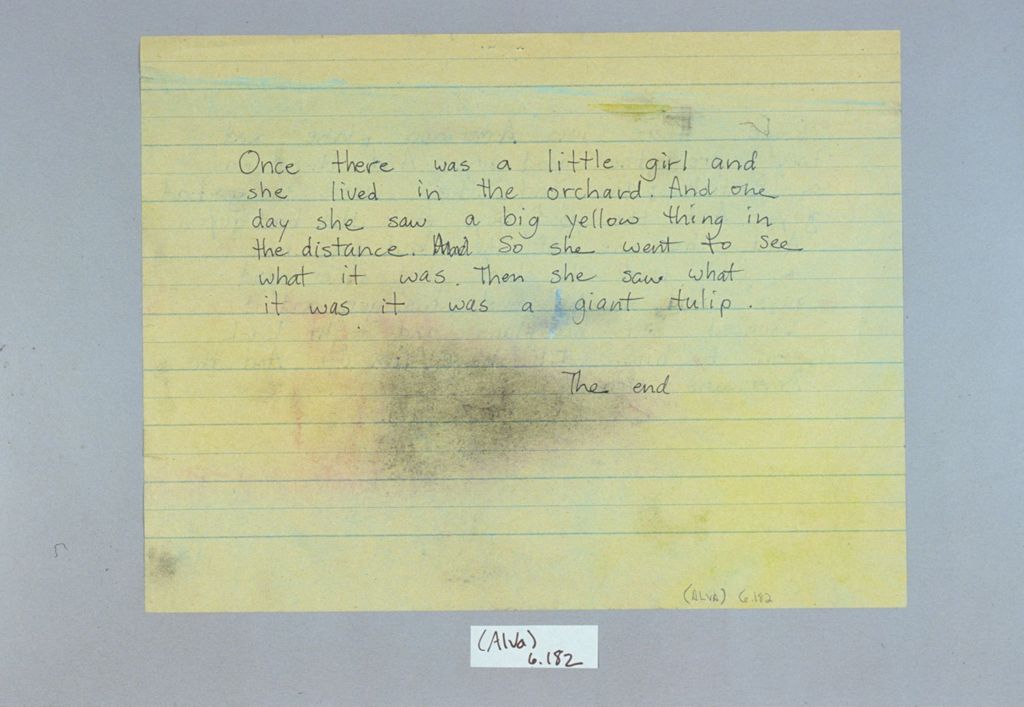 Once there was a little girl and
she lived in the orchard. And one
day she saw a big yellow thing in
the distance. And So she went to see
what it was. Then she saw what
it was it was a giant tulip.
The end
(ALVA) 6.182
(Alva)
6.182